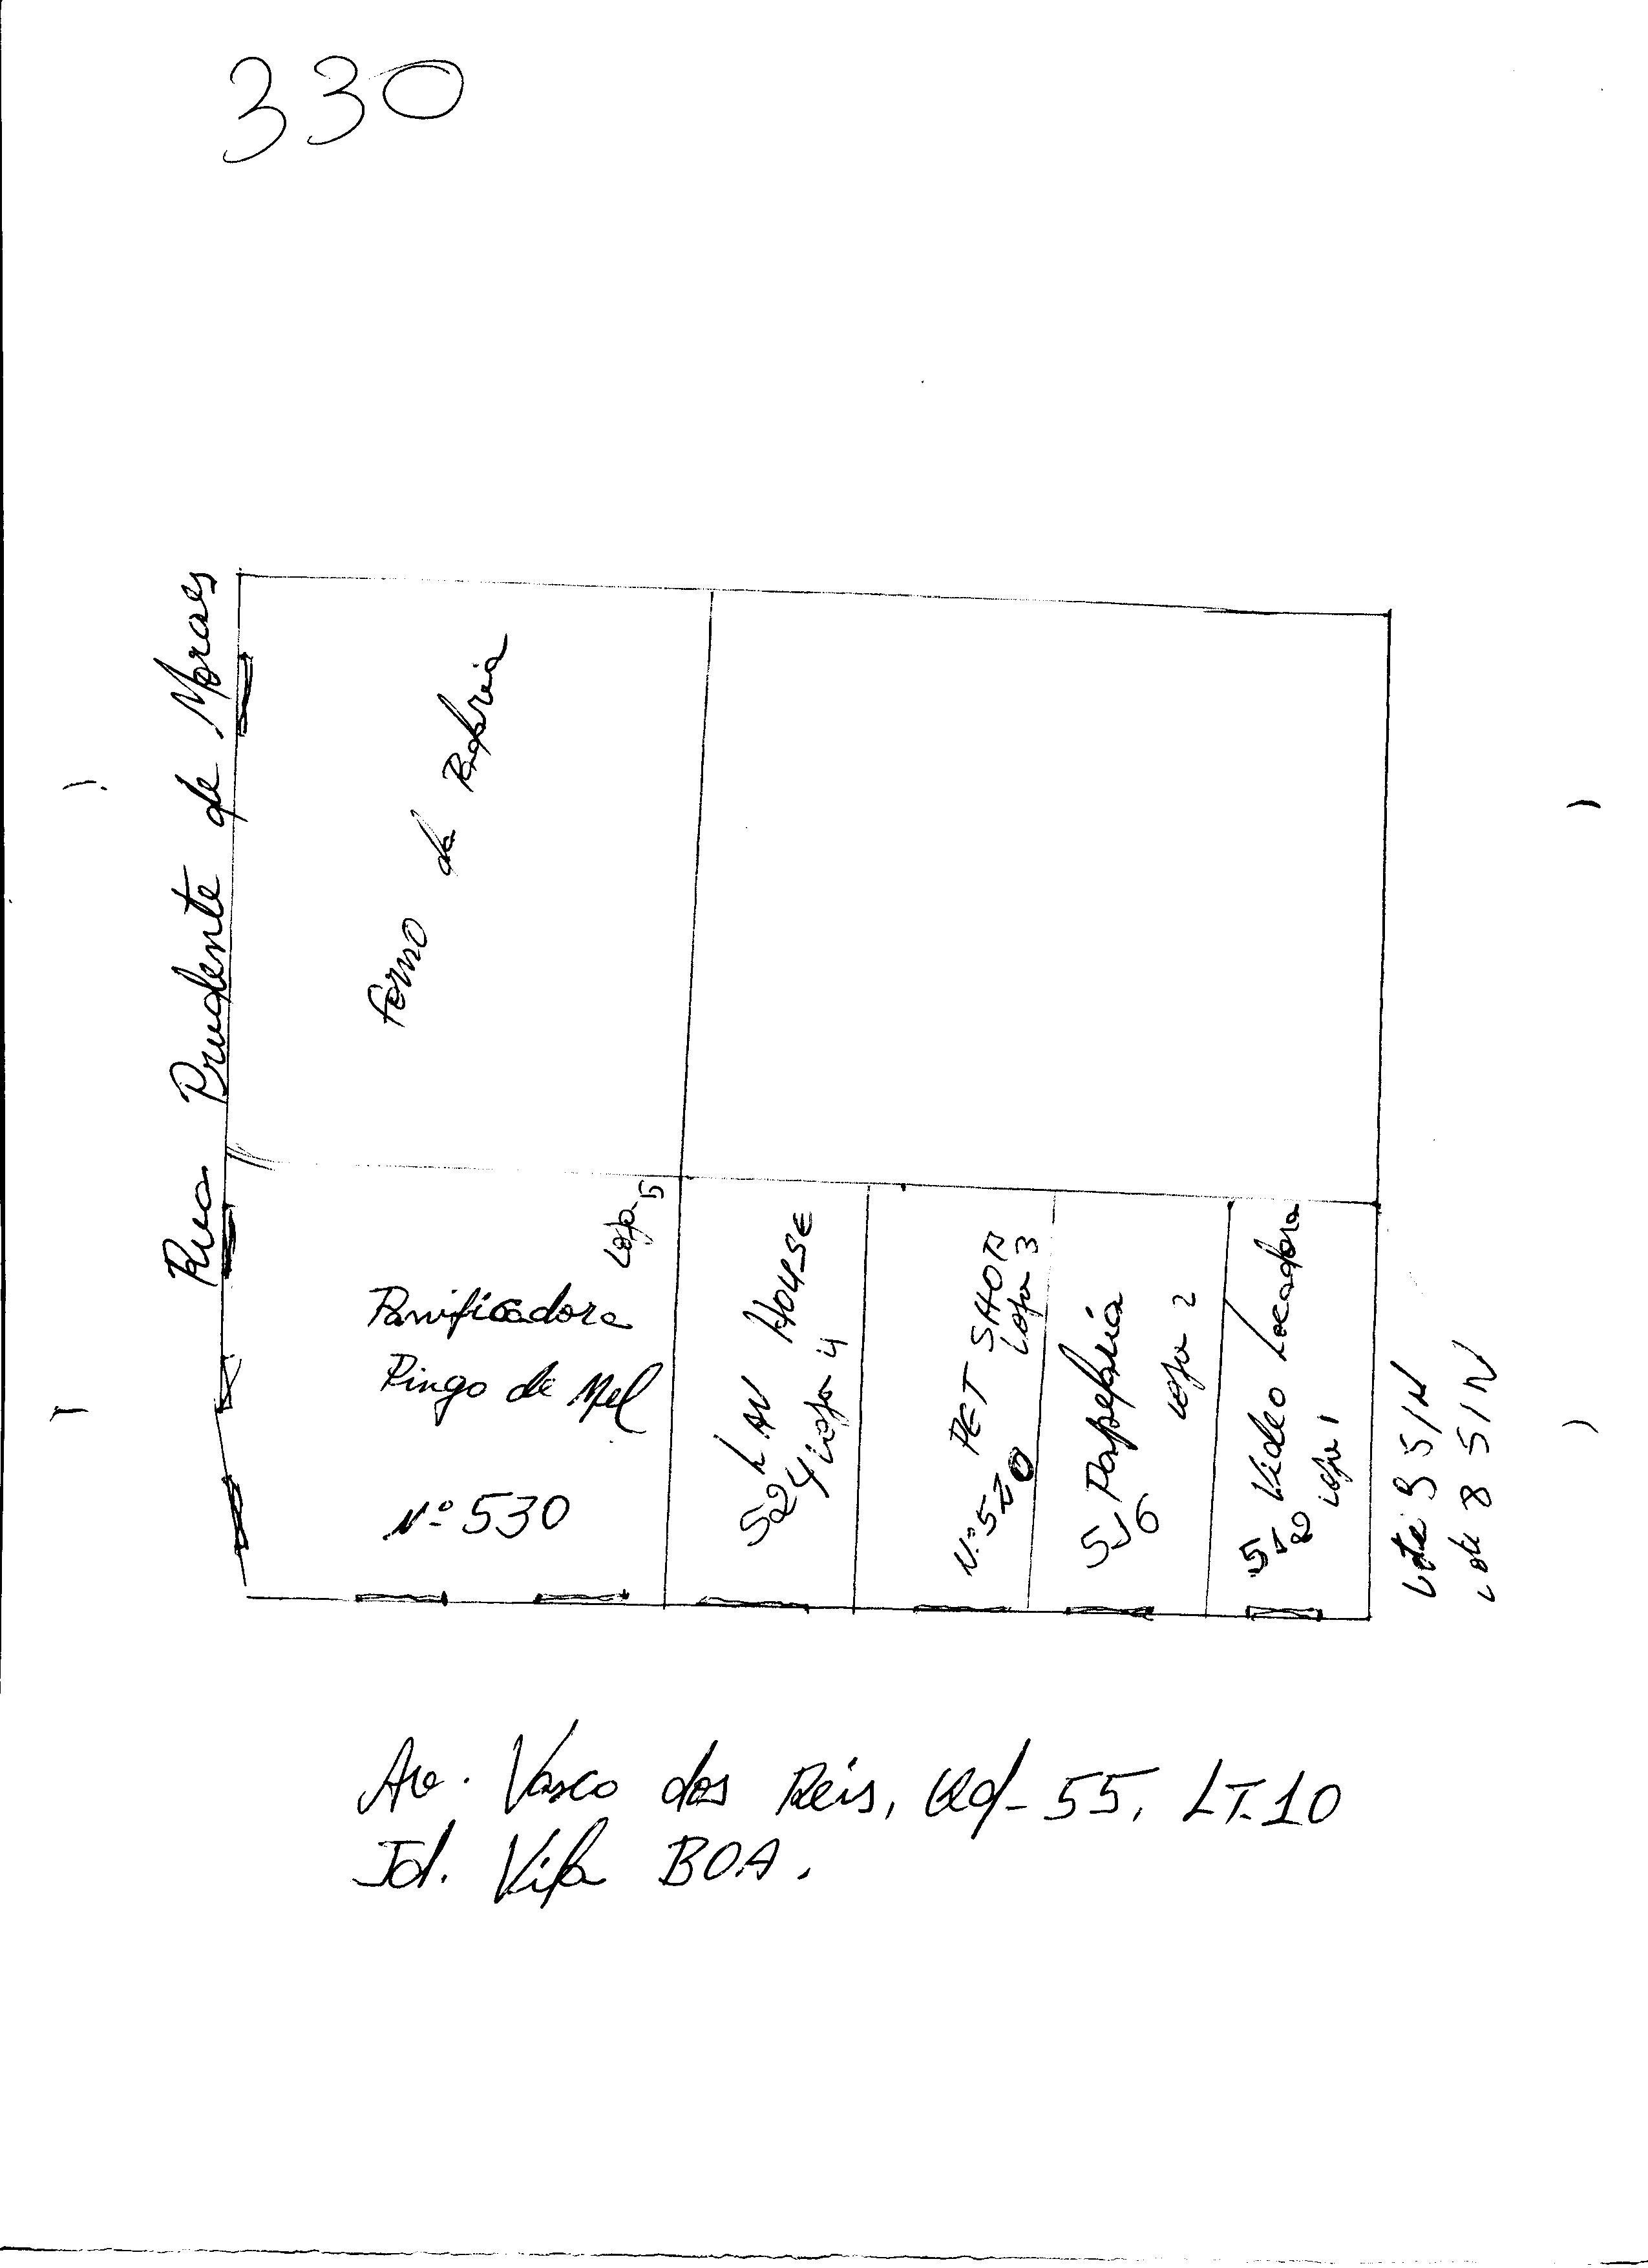 330
Rua Prudente de Moraes
Forno da Padaria
Panificadora
Pingo de Mel
Nº 530
Loja 5
LAN HOUSE
524 Loja 4
PET SHOP
Nº 520 Loja 3
516 Papelaria
Loja 2
Video Locadora
Loja 1
Lote 9 S/N
Lote 8 S/N
Av. Vasco dos Reis, Qd-55, LT-10
Jd. Vila BOA.